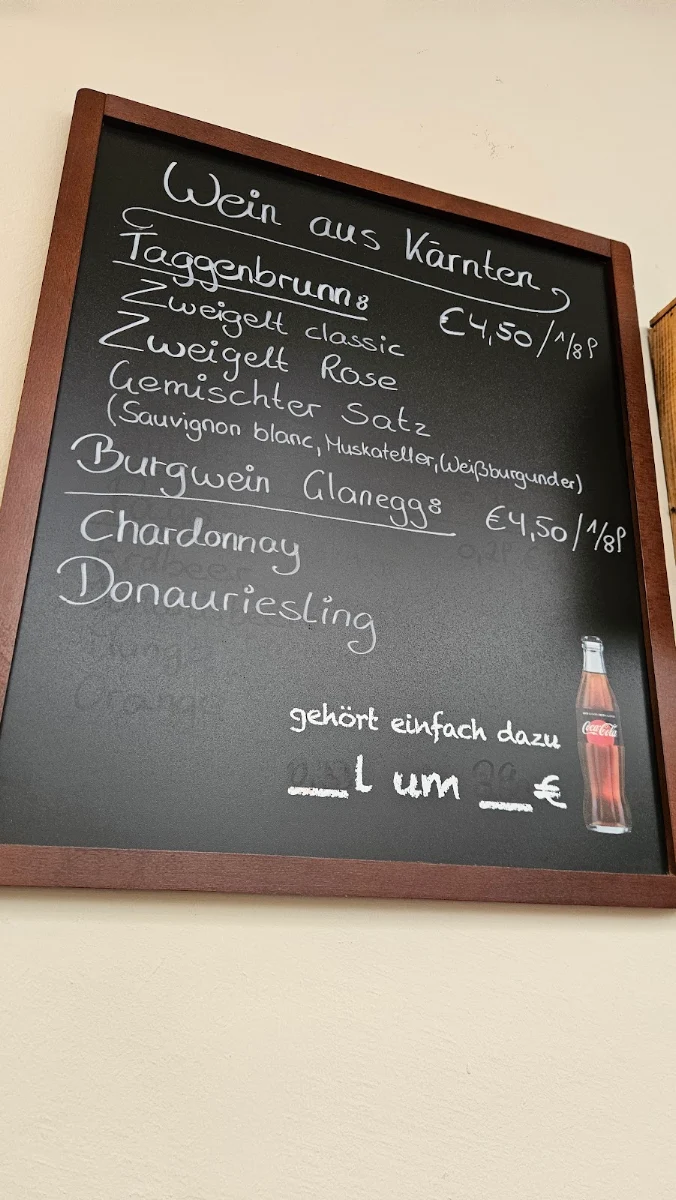 Wein aus Kärnten
Taggenbrunn:
€4,50/1/8l
Zweigelt classic
Zweigelt Rose
Gemischter Satz
(Sauvignon blanc, Muskateller, Weißburgunder)
Burgwein Glanegg:
€4,50/1/8l
Chardonnay
Donauriesling
gehört einfach dazu
__l um __€
Coca-Cola